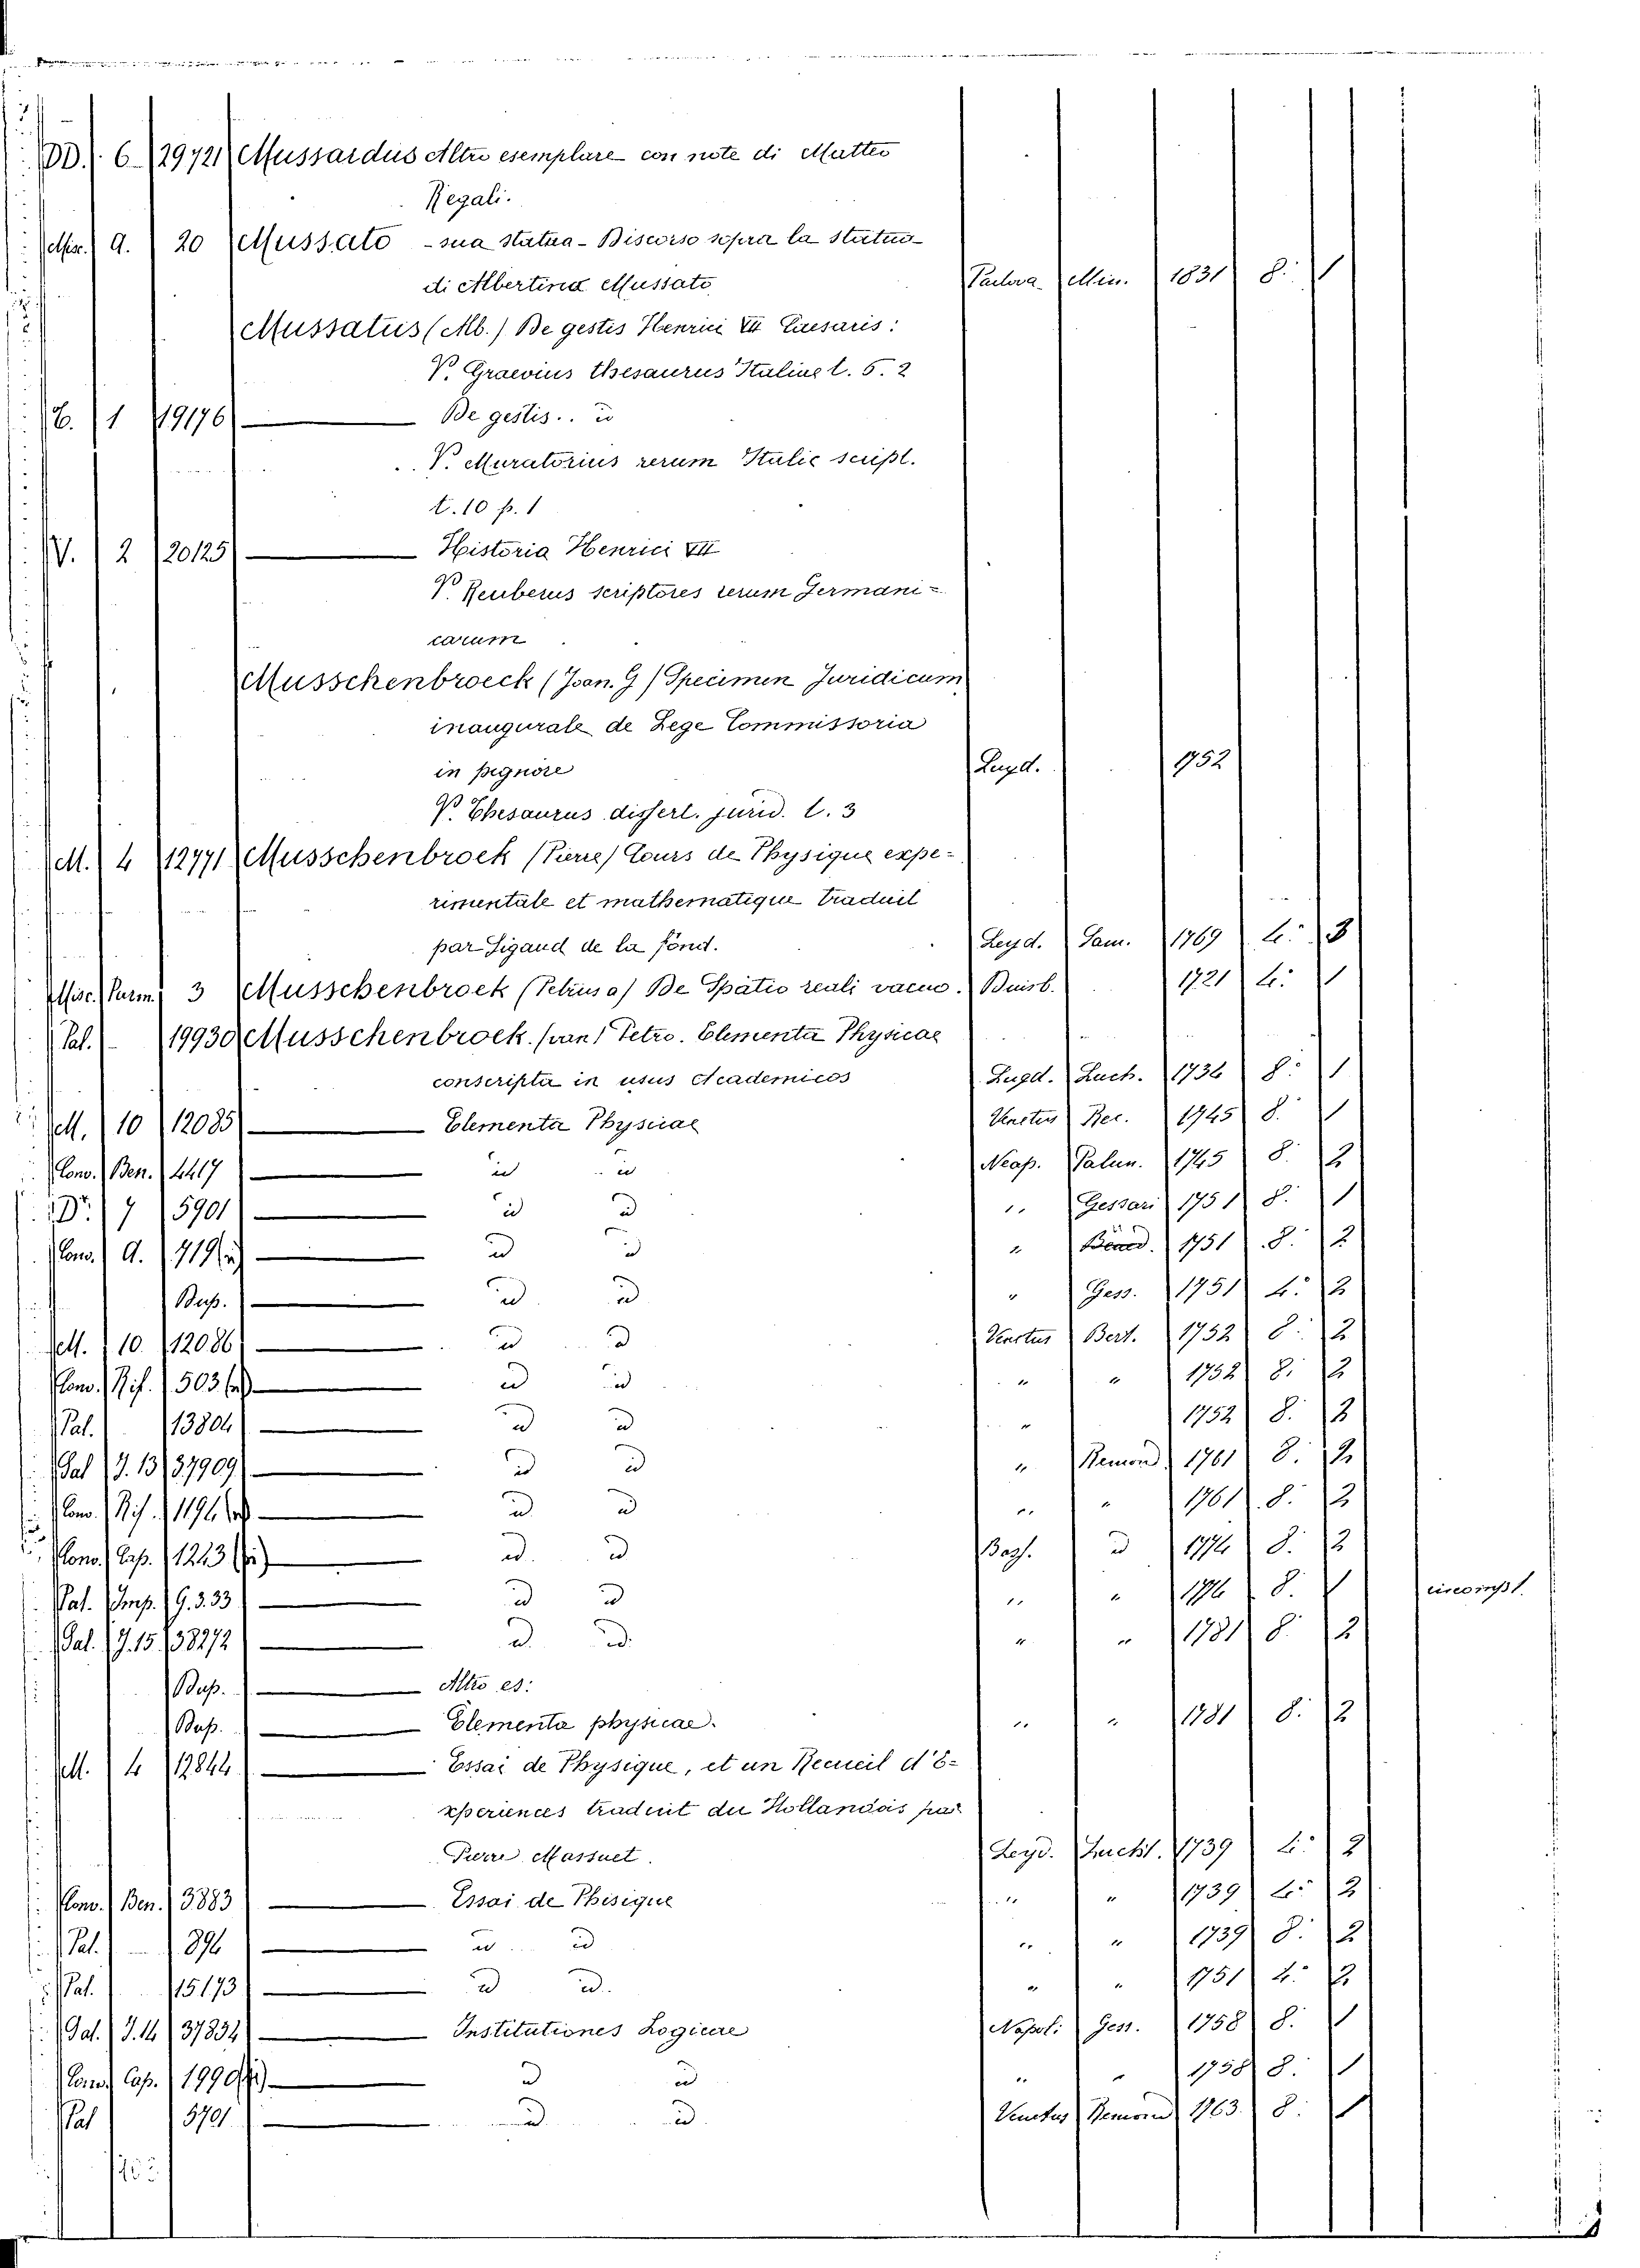 DD. 6 29721 Mussardus Altro esemplare con note di Matteo
Regali.
Misc. A. 20 Mussato - sua statua - Discorso sopra la statua
di Albertino Mussato Padova Min. 1831 8. 1
Mussatus (Alb.) De gestis Henrici VII Caesaris:
V. Graevius thesaurus Italiae t. 6. 2
1 19176 De gestis.. id
V. Muratorius rerum Italic script.
t. 10 p. 1
V. 2 20125 Historia Henrici VII
V. Reuberus scriptores rerum Germani=
carum
Musschenbroeck (Joan. G) Specimen Juridicum
inaugurale de Lege Commissoria
in pignore Lugd. 1752
V. Thesaurus dissert. jurid. t. 3
M. 4 12771 Musschenbroek (Pierre) Cours de Physique expe=
rimentale et mathematique traduit
par Sigaud de la fond. Leyd. Sam. 1769 4. 3
Misc. Parm. 3 Musschenbroek (Petrus a) De Spatio reali vacuo. Duisb. 1721 4. 1
Pal. - 19930 Musschenbroek (van) Petro. Elementa Physicae
conscripta in usus Academicos Lugd. Luch. 1734 8. 1
M. 10 12085 Elementa Physicae Venetus Rec. 1745 8. 1
Conv. Ben. 4417 id id Neap. Palun. 1745 8. 2
7 5901 id id " Gessari 1751 8. 1
Conv. A. 719 id id " 1751 8. 2
Dup. id id " Gess. 1751 4. 2
M. 10. 12086 id id Venetus Bert. 1752 8. 2
Conv. Rif. 503 id id " " 1752 8. 2
Pal. 13804 id id " 1752 8. 2
Pal J. 13 37909 id id " Remond 1761 8. 2
Conv. Rif. 1194 id id " " 1761 8. 2
Conv. Cap. 1243 id id Bass. id 1774 8. 2
Pal. Imp. G. 3. 33 id id " " 1774 8.
Pal. J. 15 38272 id id " " 1781 8. 2
Dup. Altro es:
Dup. Elementa physicae. " " 1781 8. 2
M. 4 12844 Essai de Physique, et un Recueil d'E=
xperiences traduit du Hollandois par
Pierre Massuet. Leyd. Lucht. 1739 4. 2
Conv. Ben. 3883 Essai de Phisique " " 1739 4. 2
Pal. - 894 id id " " 1739 8. 2
Pal. 15173 id id " " 1751 4. 2
Pal. J. 14 37834 Institutiones Logicae Napoli Gess. 1758 8. 1
Conv. Cap. 1990 id id " " 1758 8. 1
Pal 5701 id id Venetus Remond 1763 8. 1